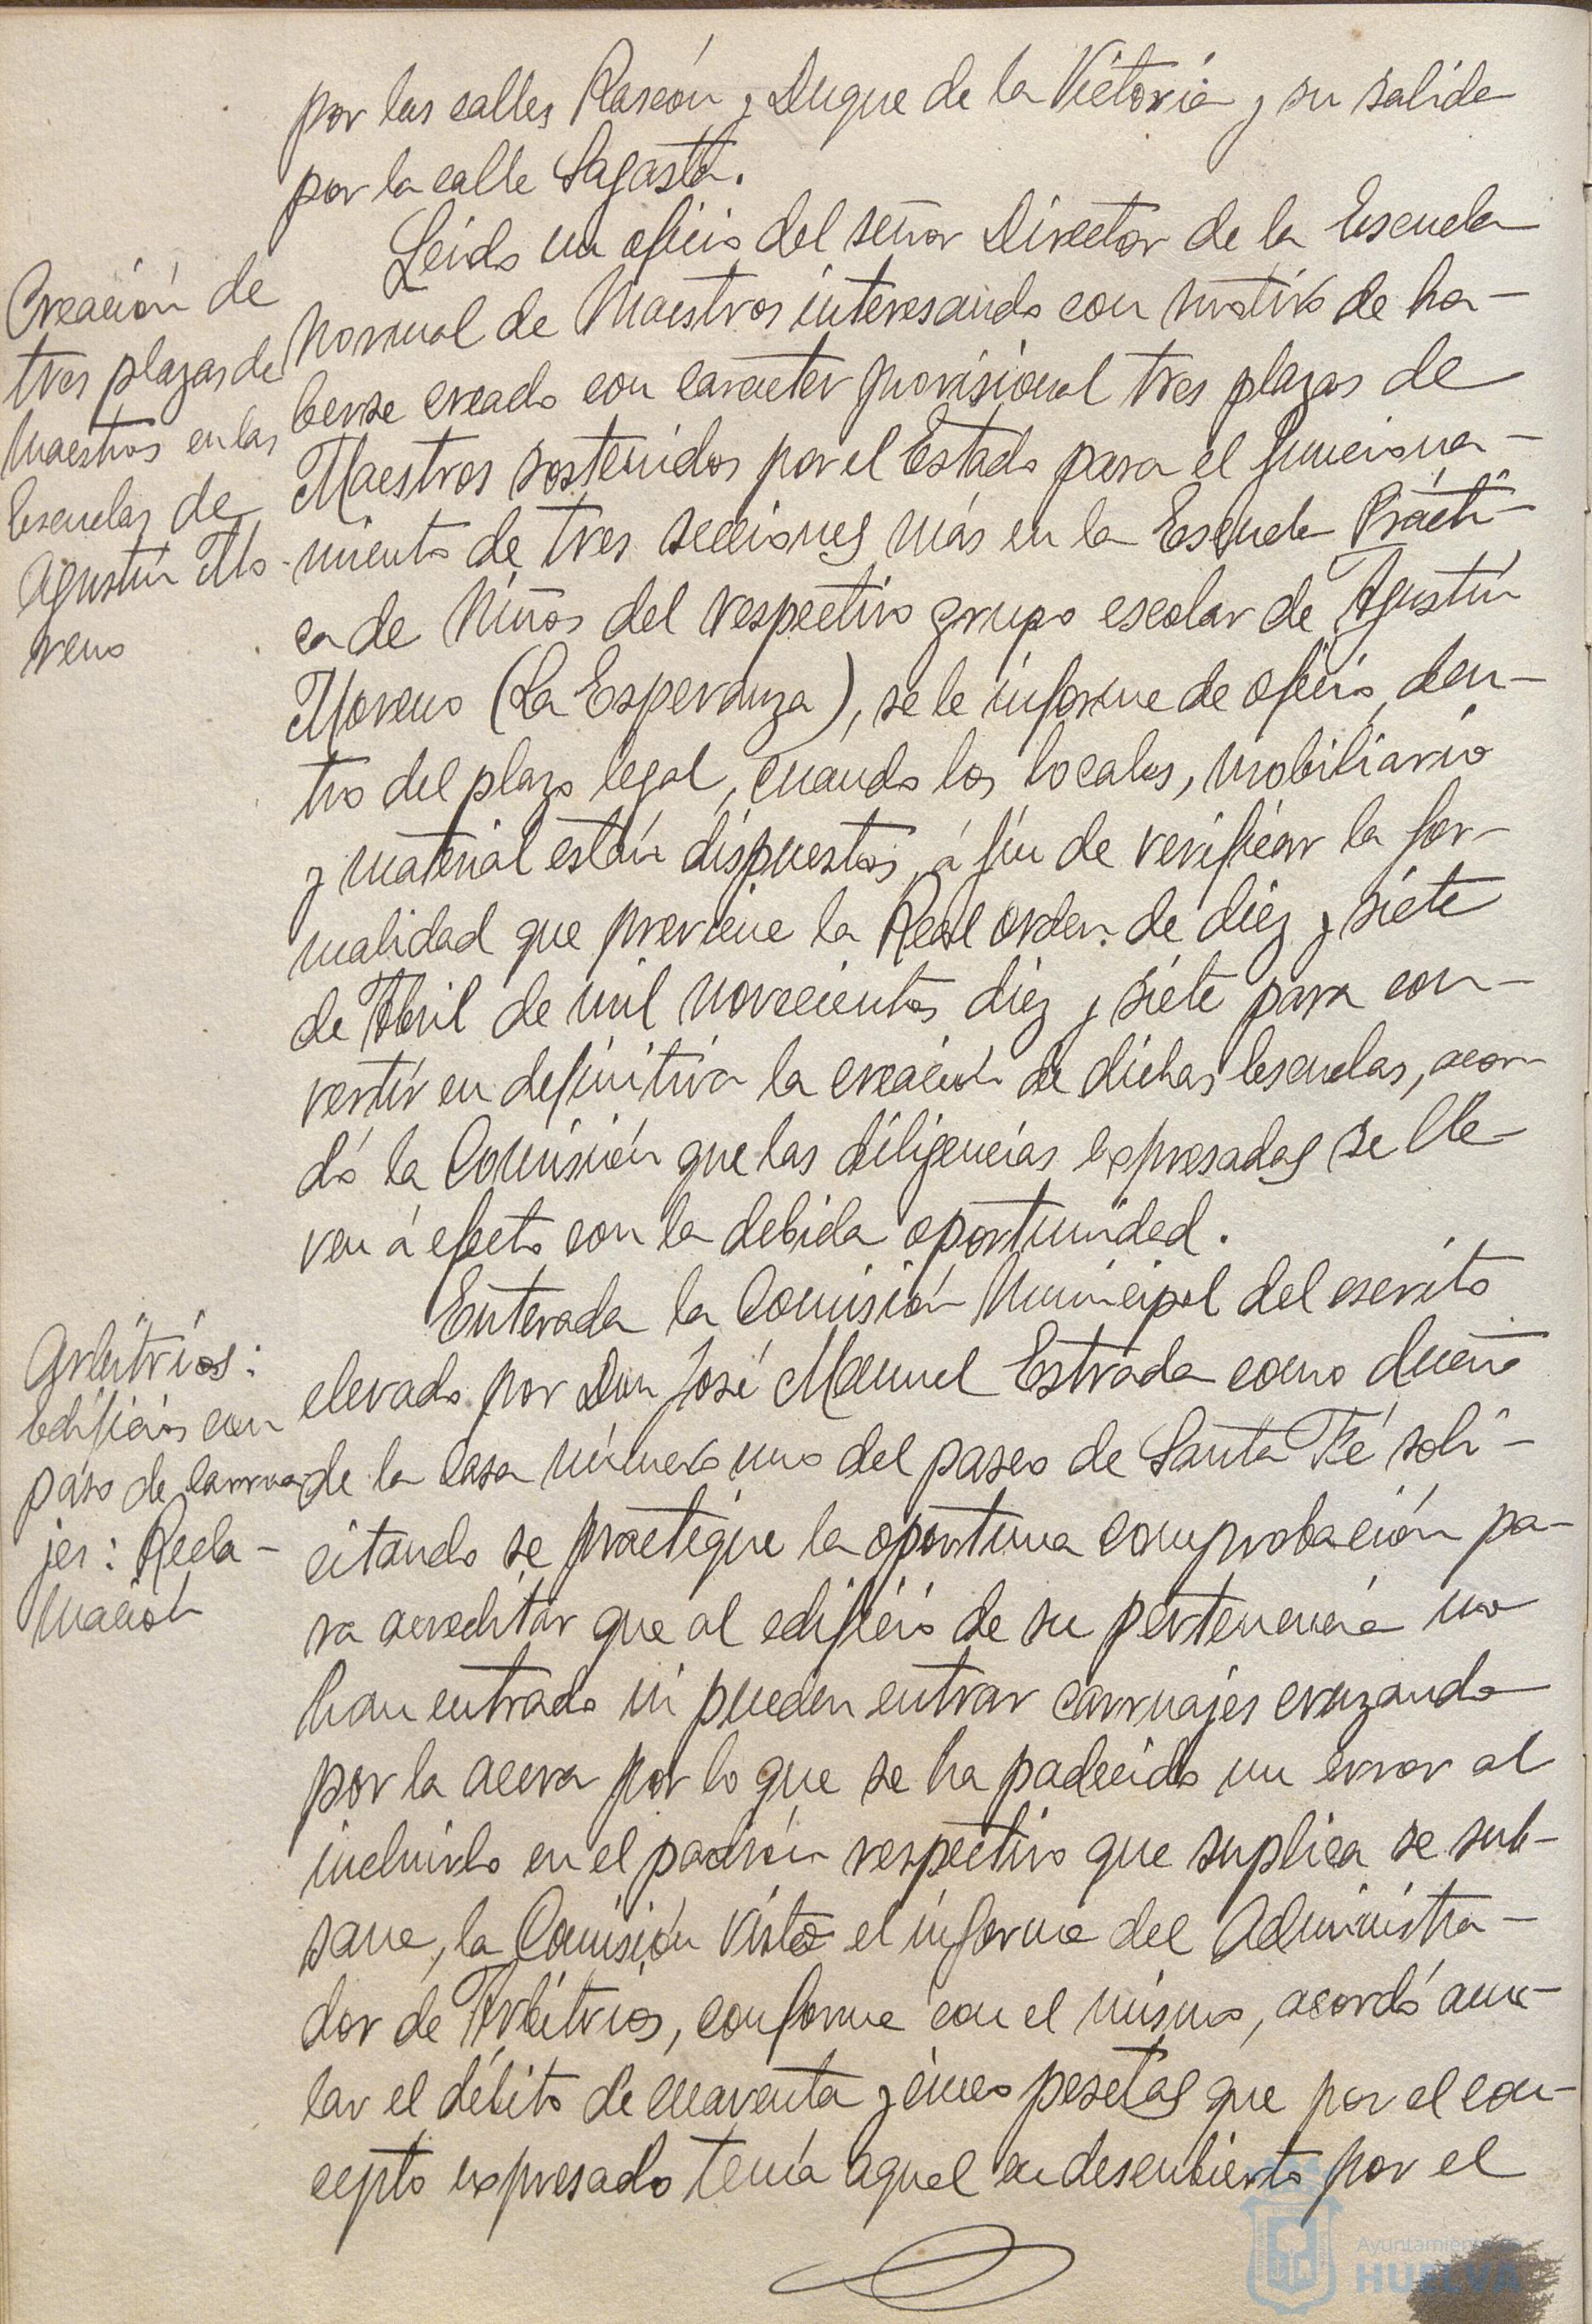 por las calles Rascón y Duque de la Victoria y su salida
por la calle Sagasta.
Creación de
tres plazas de
Maestros en las
Escuelas de
Agustín Mo-
reno
Leido un oficio del señor Director de la Escuela
Normal de Maestros interesando con motivo de ha-
berse creado con carácter provisional tres plazas de
Maestros sostenidos por el Estado para el funciona-
miento de tres secciones más en la Escuela Prácti-
ca de Niños del respectivo grupo escolar de Agustín
Moreno (La Esperanza), se le informe de oficio, den-
tro del plazo legal, cuando los locales, mobiliario
y material están dispuestos, á fin de verificar la for-
malidad que previene la Real orden de diez y siete
de Abril de mil novecientos diez y siete para con-
vertir en definitiva la creación de dichas Escuelas, acor-
dó la Comisión que las diligencias expresadas se lle-
ven á efecto con la debida oportunidad.
Arbitrios:
Edificios con
paso de carrua-
jes: Recla-
mación
Enterada la Comisión Municipal del escrito
elevado por Don José Manuel Estrada como dueño
de la casa número uno del paseo de Santa Fé soli-
citando se practique la oportuna comprobación pa-
ra acreditar que al edificio de su pertenencia no
han entrado ni pueden entrar carruajes cruzando
por la acera por lo que se ha padecido un error al
incluirlo en el padrón respectivo que suplica se sub-
sane, la Comisión visto el informe del Administra-
dor de Arbitrios, conforme con el mismo, acordó anu-
lar el débito de cuarenta y cinco pesetas que por el con-
cepto expresado tenía aquel en descubierto por el
Ayuntamiento de
HUELVA